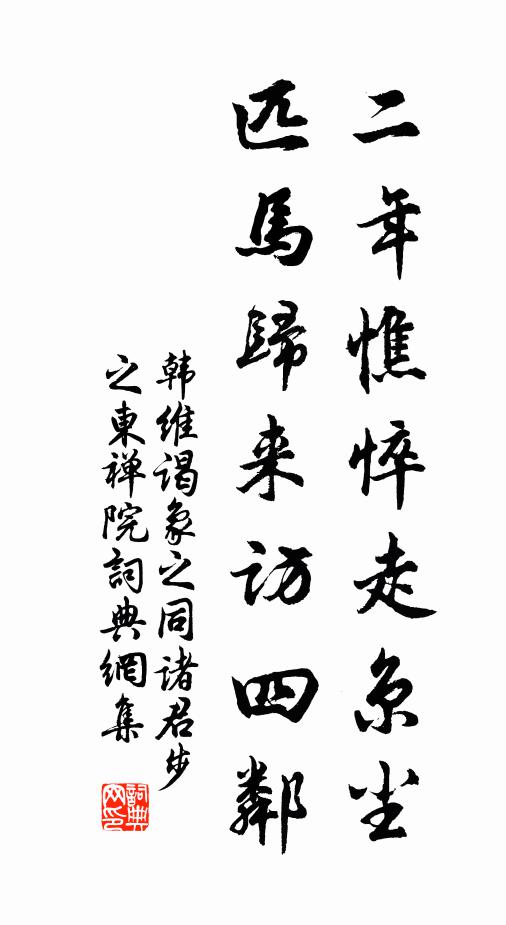 二年憔悴走京尘
匹馬歸来访四鄰
韩维谒象之同诸君步
之東禅院詞典網集
詞典网印